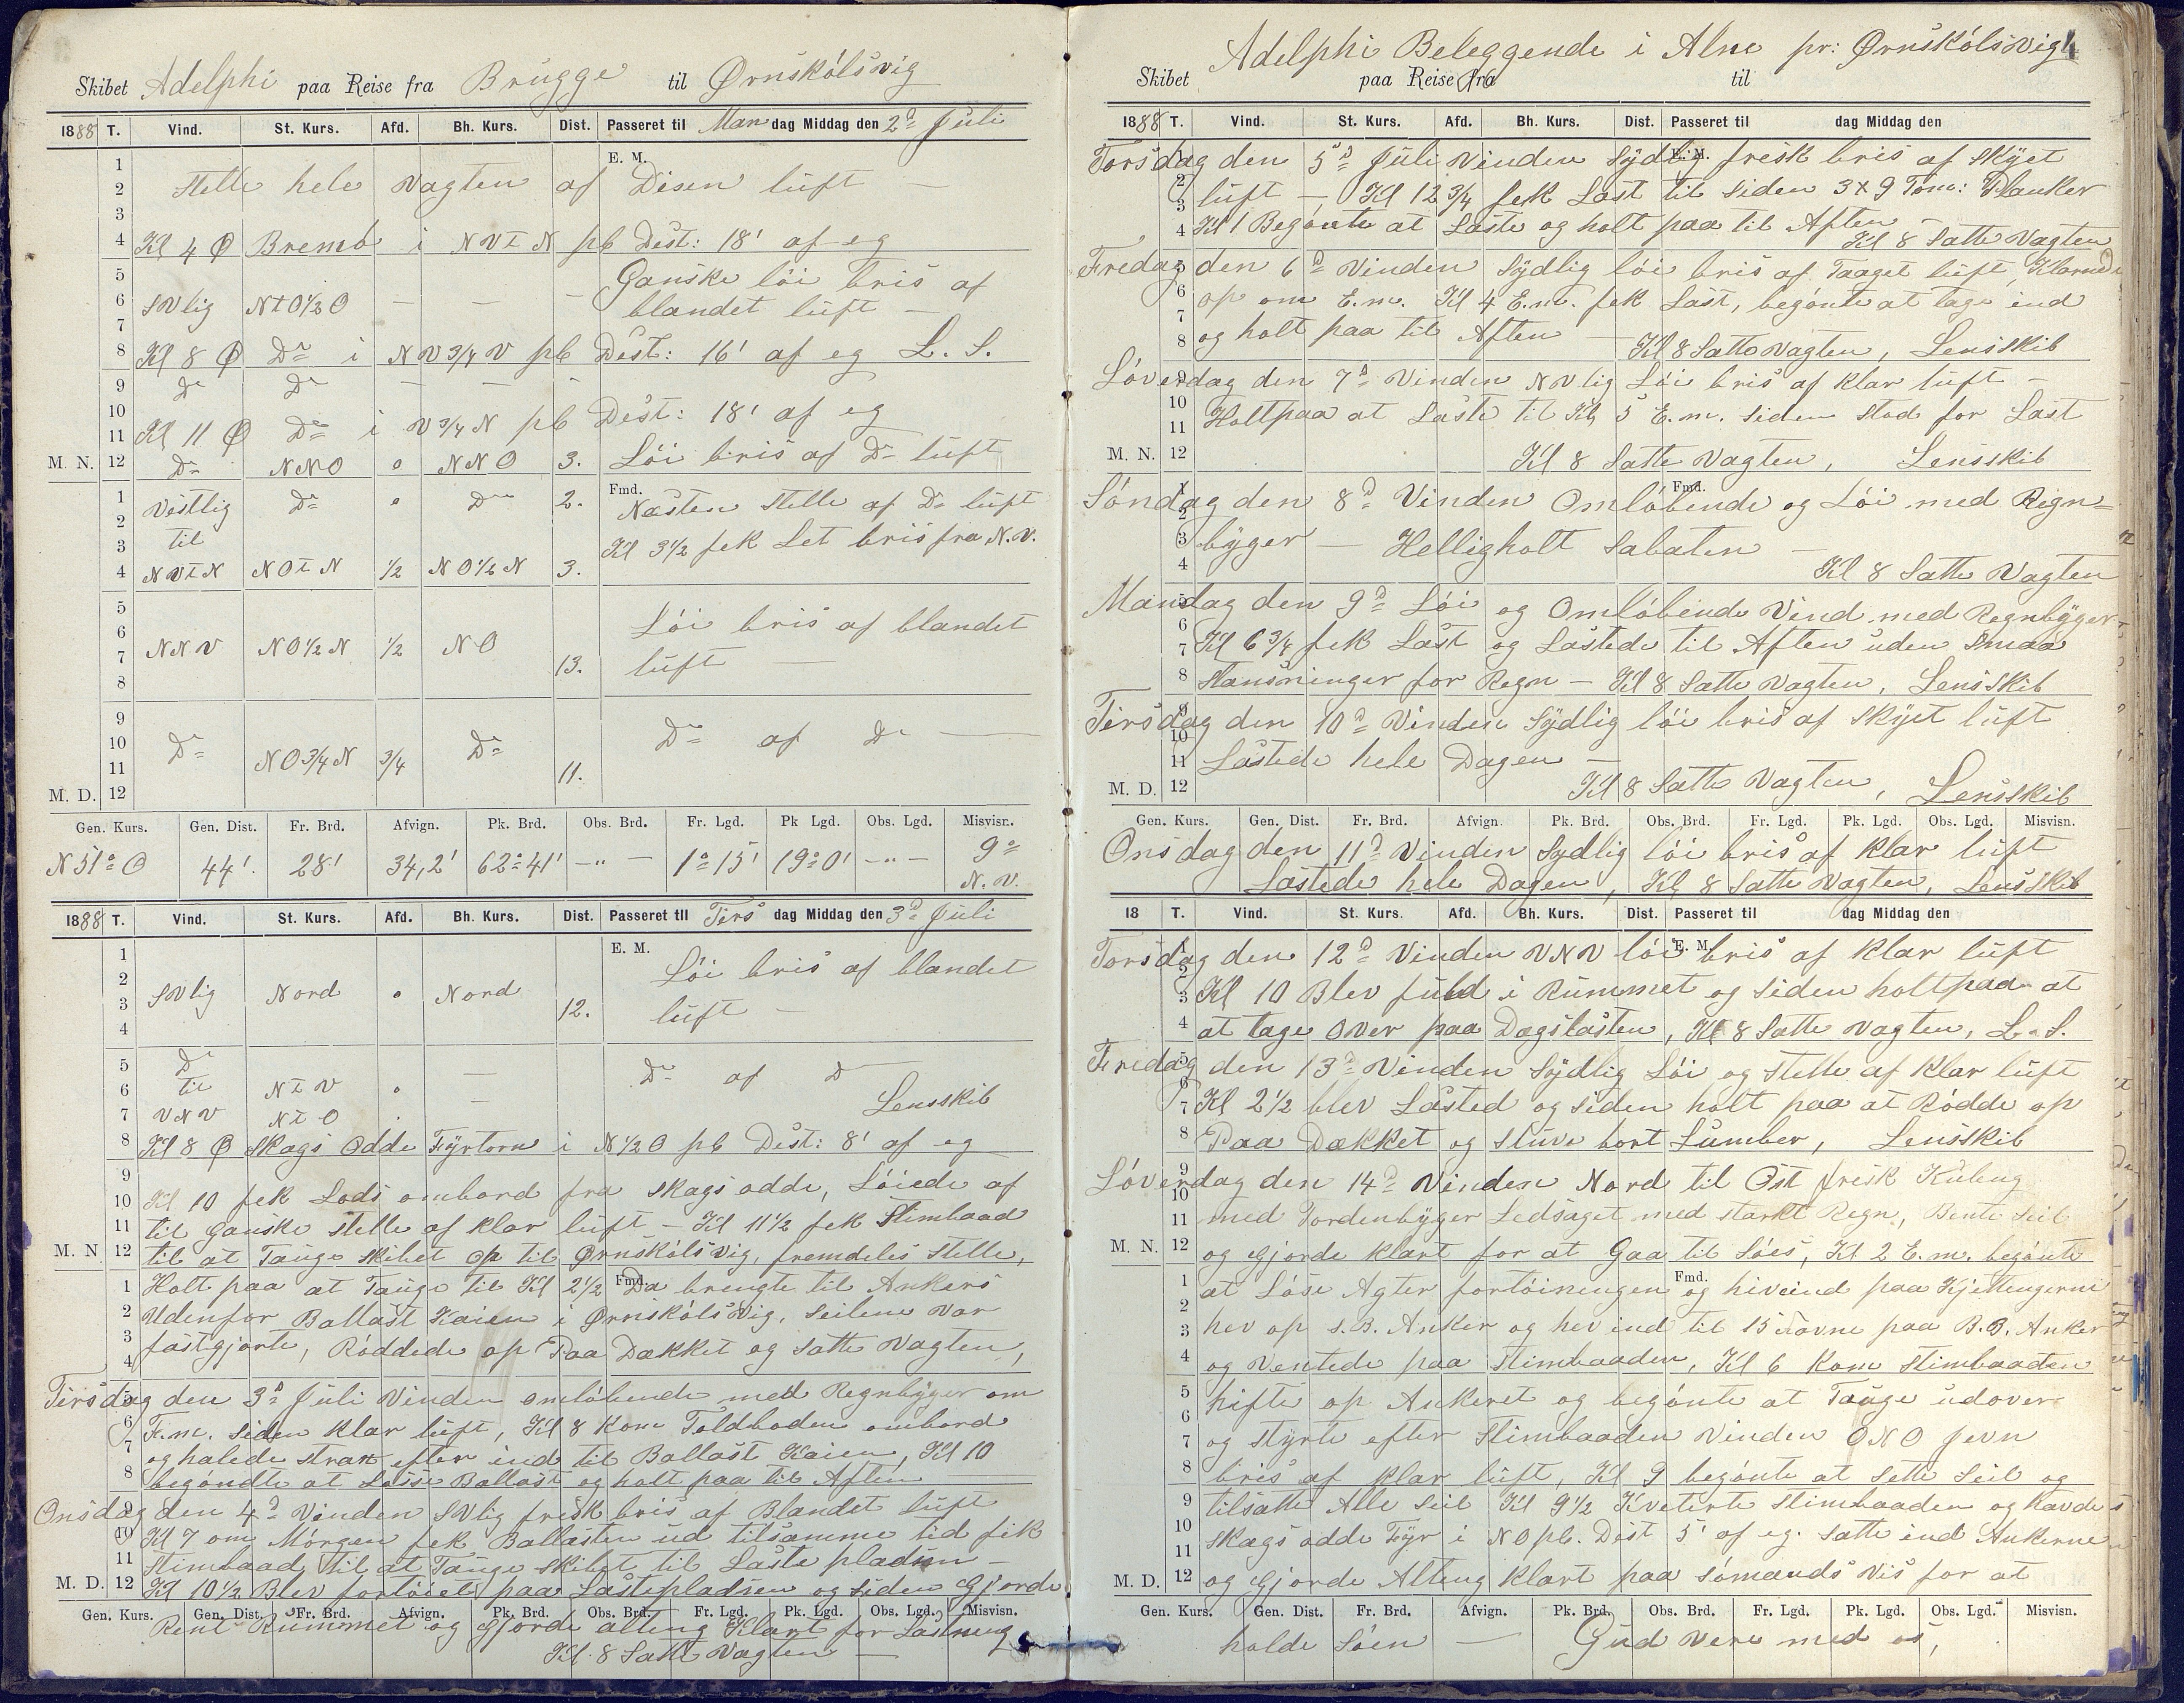 Skibet Adelphi paa Reise fra Brugge til Ørnskölsvig
1888 T. Vind. St. Kurs. Afd. Bh. Kurs. Dist. Passeret til Man dag Middag den 2d Juli
E. M.
1
2 Stelle hele Vagten af Disen luft —
3
4 Kl 4 Ø Bremö i NVtN pb Dest: 18' af eg
5 Ganske löi bris af
6 SVlig NtO½O — — — blandet luft —
7
8 Kl 8 Ø Do i NV¾V pb Dest: 16' af eg L. S.
9 Do Do — — —
10
11 Kl 11 Ø Do i V¾N pb Dest: 18' af eg
M. N. 12 Do NNO o NNO 3. Löi bris af Do luft
Fmd.
1 Vestlig Do o Do 2. Nästen Stelle af Do luft
2 til
3 Kl 3½ fek Let bris fra N.V.
4 NVtN NOtN ½ NO½N 3.
5
6 Löi bris af blandet
7 NNV NO½N ½ NO 13. luft —
8
9
10 Do NO¾N ¾ Do Do af Do —
11 11.
M. D. 12
Gen. Kurs. Gen. Dist. Fr. Brd. Afvign. Pk. Brd. Obs. Brd. Fr. Lgd. Pk Lgd. Obs. Lgd. Misvisn.
N 51° O 44'. 28' 34,2' 62° 41' -"- 1° 15' 19° 0' -"- 9° N.V.
1888 T. Vind. St. Kurs. Afd. Bh. Kurs. Dist. Passeret til Tirs dag Middag den 3d Juli
E. M.
1
2 Löi bris af blandet
3 SVlig Nord o Nord 12. luft —
4
5 Do — Do af D
6 til NtV o —
7 VNV NtO . Lensskib
8 Kl 8 Ø Skags Odde Fyrtorn i N½O pb Dest: 8' af eg
9
10 Kl 10 fek Lods ombord fra Skags odde, Löiede af
11 til Ganske Stelle af klar luft — Kl 11½ fek Stimbaad
M. N 12 til at Tauge Skibet op til Ørnskölsvig, fremdeles Stelle,
Fmd.
1 Holt paa at Tauge til Kl 2½ Da brengte til Ankers
2 Udenfor Ballast Kaien i Ørnskölsvig, Seilene var
3 fastgjorte, Röddede op Paa Dækket og Satte Vagten,
4
Tirsdag den 3d Juli Vinden omlöbende med Regnbyger om
6 F.m. siden klar luft, Kl 8 kom Toldboden ombord
7 og halede strax efter ind til Ballast Kaien, Kl 10
8 begöndte at Losse Ballast og holt paa til Aften
Onsdag den 4d Vinden SVlig frisk bris af Blandet luft
10 Kl 7 om Mörgen fek Ballasten ud tilsamme tid fik
11 Stimbaad til at Tauge Skibet til Laste pladsen —
M. D. 12 Kl 10½ Blev fortöiet paa Lastepladsen og siden Gjorde
Gen. Kurs. Gen. Dist. Fr. Brd. Afvign. Pk. Brd. Obs. Brd. Fr. Lgd. Pk. Lgd. Obs. Lgd. Misvisn.
Rent Rummet og Gjorde alting Klart for Lastning
Kl. 8 Satte Vagten —
Adelphi Beleggende i Alne pr: Ørnskölsvig
Skibet paa Reise fra til
1888 T. Vind. St. Kurs. Afd. Bh. Kurs. Dist. Passeret til dag Middag den
E. M.
Torsdag den 5d Juli Vinden Sydlig fresk bris af Skyet
2 luft —, Kl 12¾ fek Last til Siden 3 x 9 Tom: Planker
3
4 Kl 1 Begönte at Laste og holt paa til Aften —
Kl 8 Satte Vagten
Fredag den 6d Vinden Sydlig löi bris af Taaget luft, Klarnede
6 op om E.m. Kl 4 E.m. fek Last, begönte at tage ind
7
8 og holt paa til Aften — Kl 8 Satte Vagten, Lensskib
Löverdag den 7d Vinden NVlig Löi bris af klar luft —
10 Holt paa at Laste til Kl 5 E.m. siden stod for Last
11
M. N. 12 Kl 8 Satte Vagten, Lensskib
Fmd.
Söndag den 8d Vinden Omlöbende og Löi med Regn=
3 byger — Helligholt Sabaten —
4 Kl 8 Satte Vagten
Mandag den 9d Löi og Omlöbende Vind med Regnbyger
6
7 Kl 6¾ fek Last og Lastede til Aften uden Smaa
8 Stansninger for Regn — Kl 8 Satte Vagten, Lensskib
Tirsdag den 10d Vinden Sydlig löi bris af Skyet luft
10
11 Lastede hele Dagen —
M. D. 12 Kl 8 Satte Vagten, Lensskib
Gen. Kurs. Gen. Dist. Fr. Brd. Afvign. Pk. Brd. Obs. Brd. Fr. Lgd. Pk. Lgd. Obs. Lgd. Misvisn.
Onsdag den 11d Vinden Sydlig löi bris af klar luft
Lastede hele Dagen, Kl 8 Satte Vagten, Lensskib
18 T. Vind. St. Kurs. Afd. Bh. Kurs. Dist. Passeret til dag Middag den
E. M.
Torsdag den 12d Vinden VNV löi bris af klar luft
3 Kl 10 Blev fuld i Rummet og siden holt paa at
4 at tage Over paa Dagslasten, Kl 8 Satte Vagten, L. S.
Fredag den 13d Vinden Sydlig Löi og Stelle af klar luft
7 Kl 2½ blev Lasted og siden holt paa at Rödde op
8 Paa Dækket og stuve bort Lumber, Lensskib
Löverdag den 14d Vinden Nord til Ost frisk Kuleng
10
11 med Tordenbyger Ledsaget med starkt Regn, Bente Seil
M. N. 12 og Gjorde klart for at Gaa til Söes, Kl 2 E.m. begönte
Fmd.
1 at Löse Agter fortöiningen og hiveind paa Kjettengerne
2
3 hev op S.B. Anker og hev ind til 15 Favne paa B.B. Anker
4 og Ventede paa Stimbaaden, Kl 6 kom Stimbaaden
5 hifte op Ankeret og begönte at Tauge udover
6
7 og Styrte efter Stimbaaden Vinden ONO jevn
8 bris af klar luft, Kl 9 begönte at Sette Seil og
9 tilsatte Alle Seil Kl 9½ Kveterte Stimbaaden og havde
10 Skags odde Fyr i NO pb. Dest 5' af eg. Satte ind Ankerne
11
M. D. 12 og Gjorde Alteng klart paa Sömands Vis for at
Gen. Kurs. Gen. Dist. Fr. Brd. Afvign. Pk. Brd. Obs. Brd. Fr. Lgd. Pk. Lgd. Obs. Lgd. Misvisn.
holde Söen — Gud vere med os,